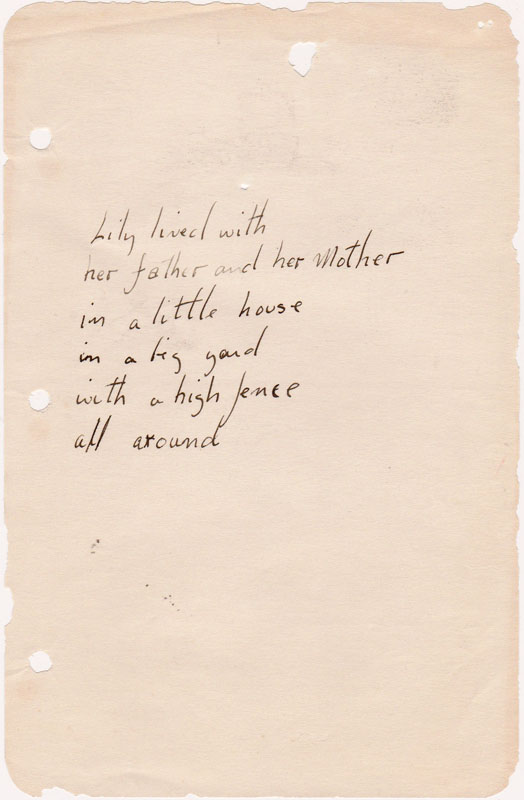 Lily lived with
her father and her Mother
in a little house
in a big yard
with a high fence
all around